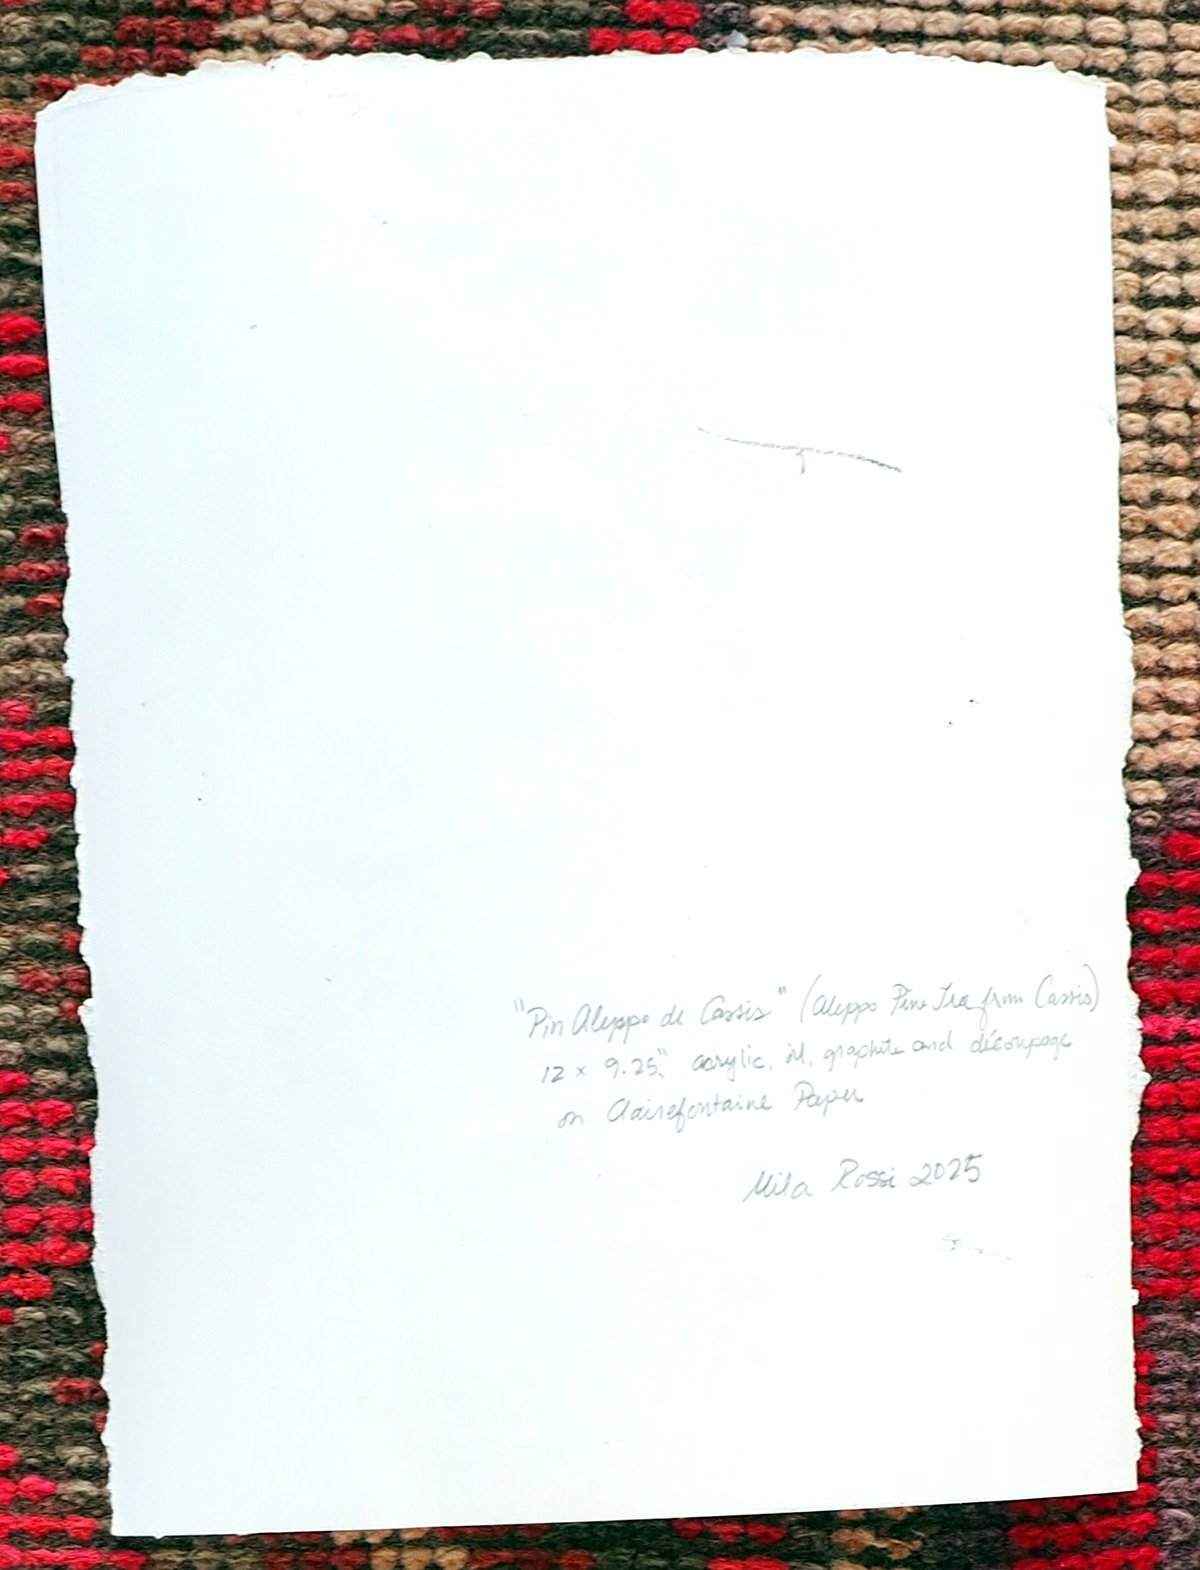 "Pin Aleppo de Cassis" (Aleppo Pine Tree from Cassis)
12 x 9.25," acrylic, oil, graphite and découpage
on Clairefontaine Paper
Mila Rossi 2025